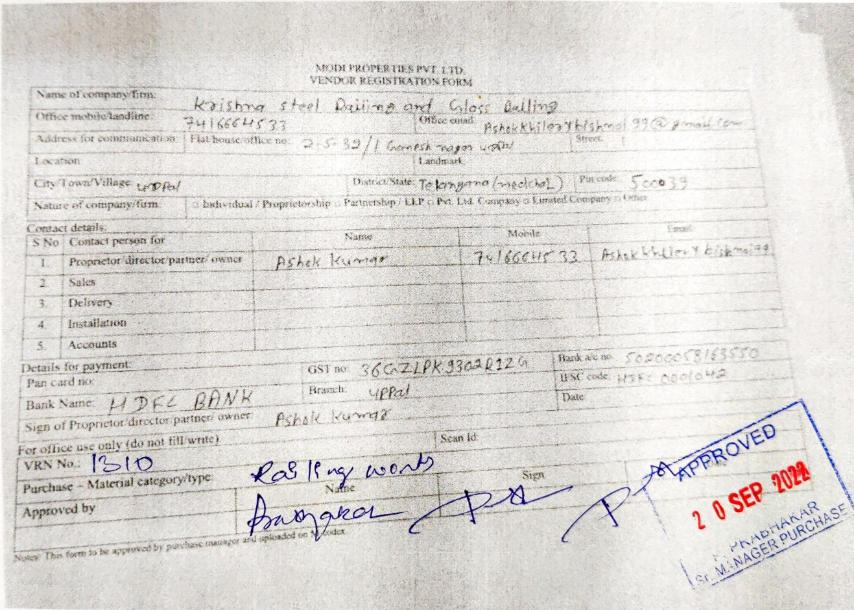 MODI PROPERTIES PVT. LTD.
VENDOR REGISTRATION FORM
Name of company/firm: Krishna steel Dailing and Gloss Dalling
Office mobile/landline: 7416664533 Office email: Ashokkhilerybishnoi99@gmail.com
Address for communication: Flat/house/office no: 2-5-32/1 Ganesh nagar uppal Street:
Location Landmark:
City/Town/Village: uppal District/State: Telangana (medchal) Pin code: 500039
Nature of company/firm: ○ Individual / Proprietorship ○ Partnership / LLP ○ Pvt. Ltd. Company ○ Limited Company ○ Other
Contact details:
S No Contact person for Name Mobile Email
1. Proprietor/director/partner/ owner Ashok kumar 7416664533 Ashokkhilerybishnoi99
2. Sales
3. Delivery
4. Installation
5. Accounts
Details for payment:
Pan card no: GST no: 36GZLPK9302R1ZG Bank a/c no: 50200058163550
Bank Name: HDFC BANK Branch: uppal IFSC code: HDFC 0001042
Sign of Proprietor/director/partner/ owner: Ashok kumar Date:
For office use only (do not fill/write)
VRN No.: 1310 Scan Id:
Purchase – Material category/type: Railing works
Approved by Name Sign
Prabhakar
APPROVED
20 SEP 2022
P. PRABHAKAR
Sr. MANAGER PURCHASE
Notes: This form to be approved by purchase manager and uploaded on